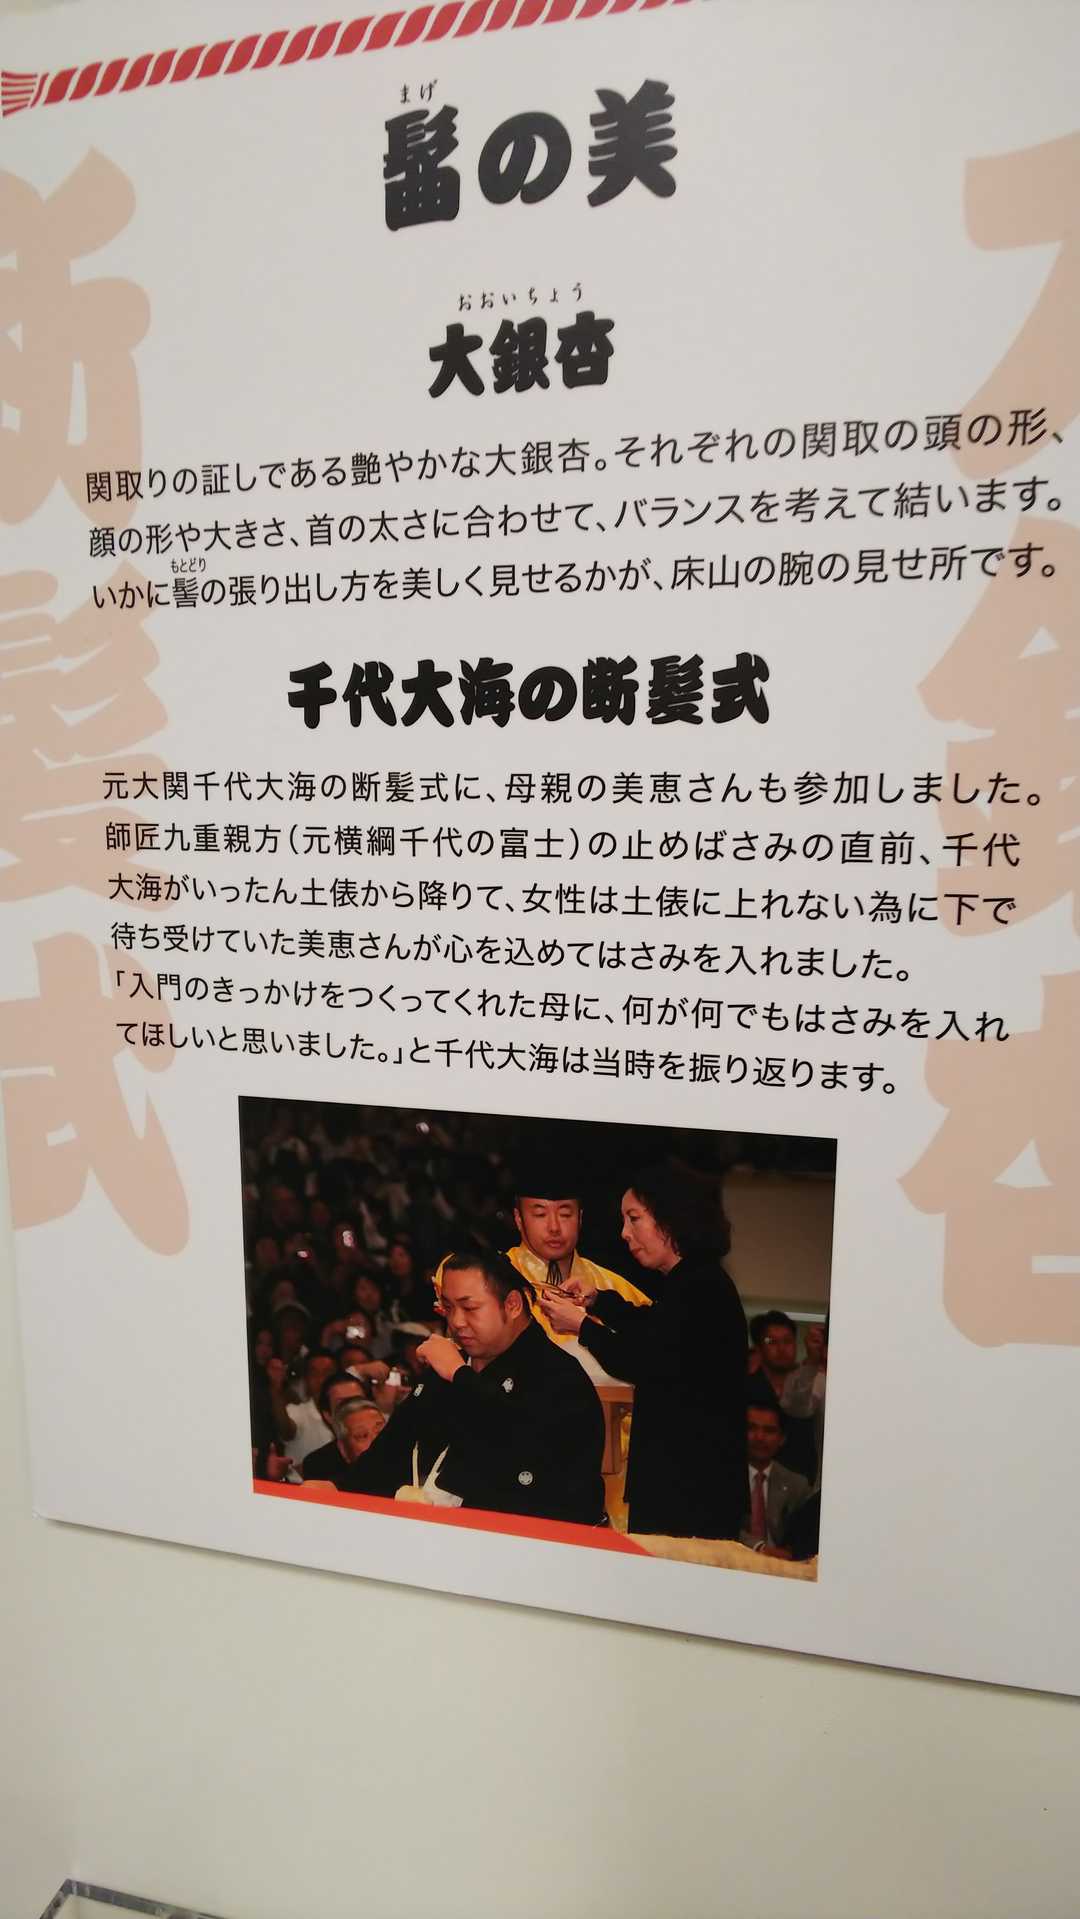 まげ
髷の美
おおいちょう
大銀杏
関取りの証しである艶やかな大銀杏。それぞれの関取の頭の形、
顔の形や大きさ、首の太さに合わせて、バランスを考えて結います。
もとどり
いかに髻の張り出し方を美しく見せるかが、床山の腕の見せ所です。
千代大海の断髪式
元大関千代大海の断髪式に、母親の美恵さんも参加しました。
師匠九重親方（元横綱千代の富士）の止めばさみの直前、千代
大海がいったん土俵から降りて、女性は土俵に上れない為に下で
待ち受けていた美恵さんが心を込めてはさみを入れました。
「入門のきっかけをつくってくれた母に、何が何でもはさみを入れ
てほしいと思いました。」と千代大海は当時を振り返ります。
断髪式
大銀杏